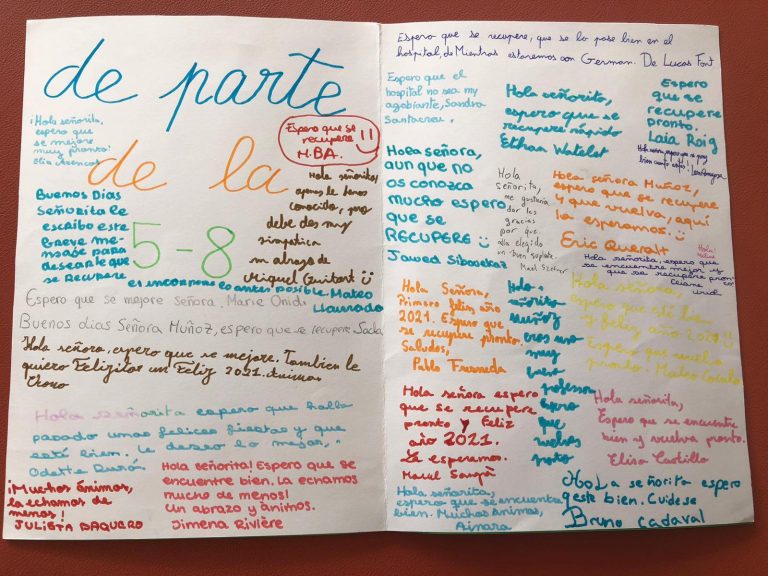 de parte
de la
5-8
¡Hola señorita,
espero que
se mejore
muy pronto!
Espero que se
recupere
H.BA.
Hola señorita,
apenas le
conocido, pero
debe des muy
simpatica
un abrazo de
Miguel Guitart
Buenos Dias
Señorita le
escribo este
breve me-
nsage para
desearte que
se recupere
antes posible. Mateo
Llaurado
Espero que se mejore señora. Marie
Buenos dias Señora Muñoz, espero que se recupere.
Hola señora, espero que se mejore. Tambien le
quiero Felizitar un Feliz 2021.
Hola señorita espero que halla
pasado unas felices fiestas y que
está bien. Le deseo lo mejor,
Odette Durón
¡Muchos Ánimos,
la echamos de
menos!
JULIETA BAQUERO
Hola señorita! Espero que se
encuentre bien. La echamos
mucho de menos!
Un abrazo y ánimos.
Jimena Rivière
Espero que se recupere, que se lo pase bien en el
hospital, de Mientras estaremos con German. De Lucas Font
Espero que el
hospital no sea muy
agobiante, Sandra
Santacreu.
Hola señorito,
espero que se
recupere rápido
Ethan Watelet
Espero
que se
recupere
pronto.
Laia Roig
Hola señora,
aunque no
os conozca
mucho espero
que se
RECUPERE
Jawed
Hola
señorita,
me gustaria
dar las
gracias
por que
alla elegido
un buen suplente.
Hola señora Muñoz,
espero que se recupere
y que vuelva, aquí
la esperamos.
Eric Queralt
Hola señorita, espero que
se encuentre mejor y
que se recupere pronto
Hola Señora,
Primero feliz año
2021. Espero que
se recupere pronto.
Saludos,
Pablo
Hola
señorito
Muñoz
eres una
muy
buena
profesora
espero
que
vuelvas
pronto
Hola señora,
espero que está bien
y feliz año 2021
Espero que vuelva
pronto. Mateo
Hola señora espero
que se recupere
pronto y Feliz
año 2021.
La esperamos.
Hola señorita,
Espero que se encuentre
bien y vuelva pronto.
Elisa Castillo
Hola señorita,
espero que se encuentre
bien. Muchos Animos,
Ainara
HoLa señorita espero
q este bien. Cuidese
Bruno Cadaval